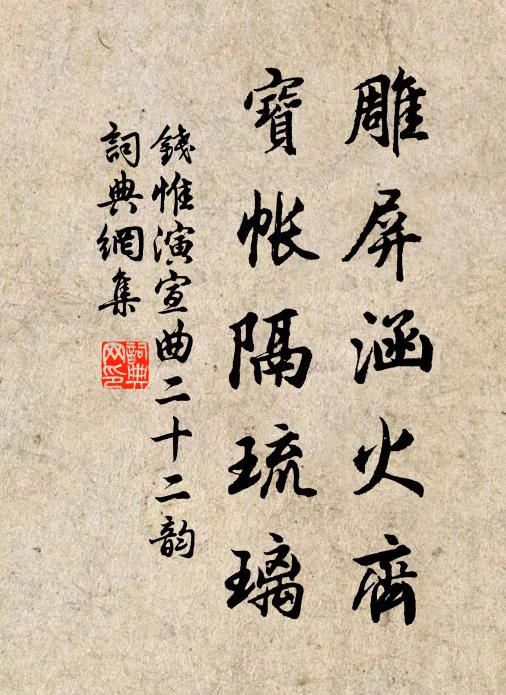 雕屏涵火齊
寶帳隔琉璃
錢惟演宣曲二十二韵
詞典網集
詞典网印